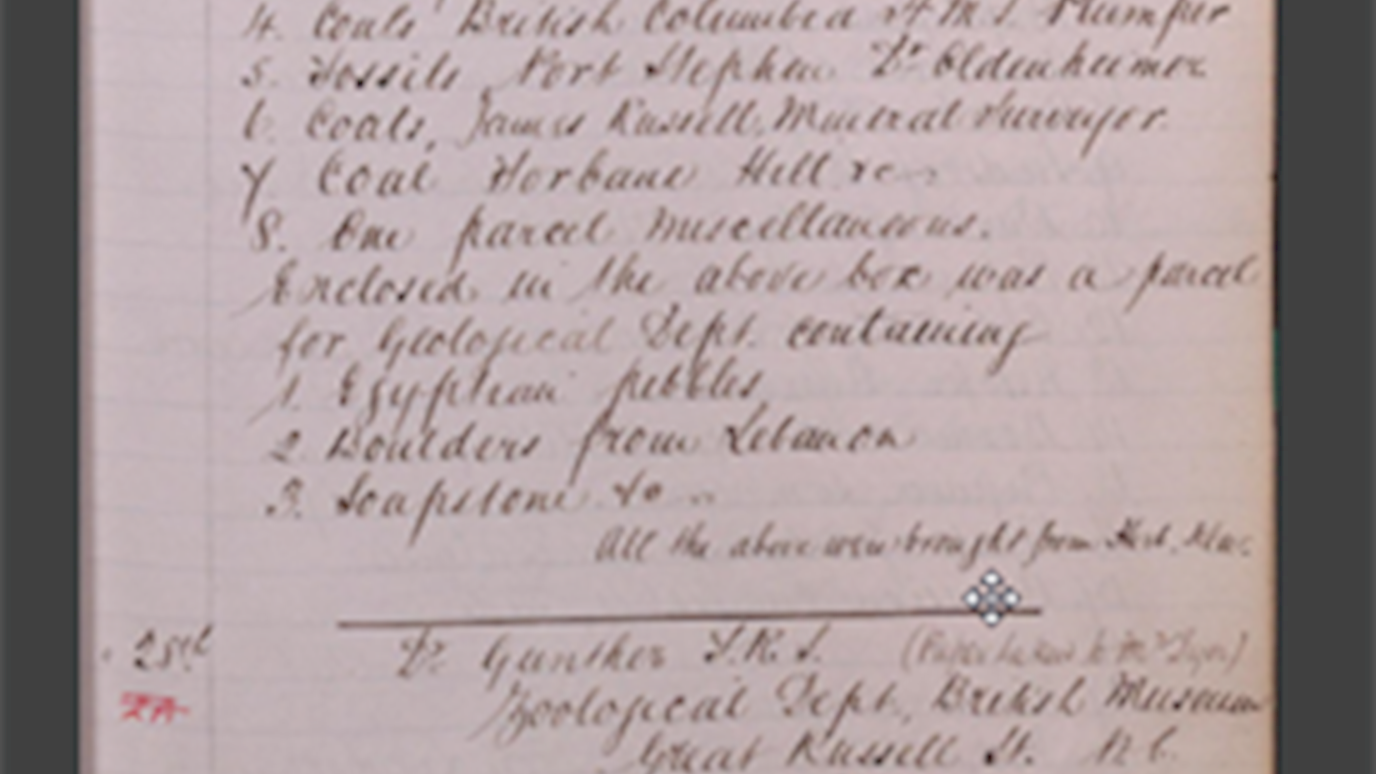 4. Coals British Columbia H.M.S. Plumper
5. Fossils, Port Stephen Dr Oldenheimer
6. Coals, James Russell, Mineral Surveyor.
7 Coal Torbane Hill &c.
8. One parcel Miscellaneous.
Enclosed in the above box was a parcel
for Geological Dept. containing
1. Egyptian pebbles
2 Boulders from Lebanon
3. Soapstone
All the above were brought from Herb. Mus.
25th
Dr Gunther F.R.S.
Zoological Dept, British Museum
Great Russell St. W.C.